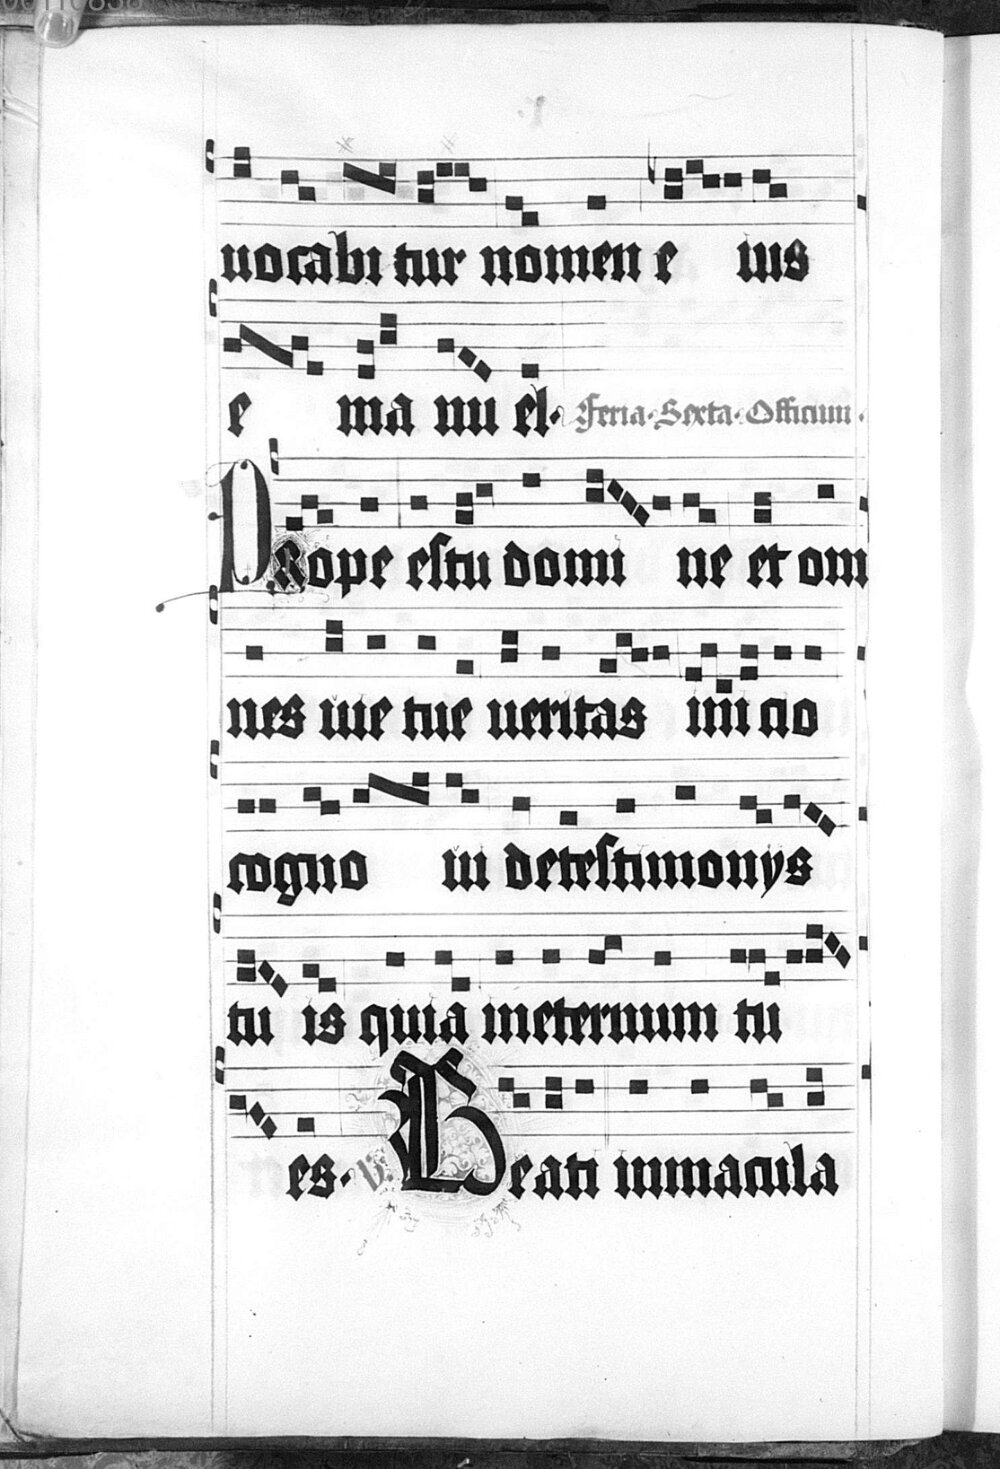 uocabi tur nomen e ius
e ma nu el. Feria. Sexta. Officium.
PRope estu domi ne et om
nes uie tue ueritas inicio
cogno ui detestimonijs
tu is quia ineternum tu
es. V. Beati immacula